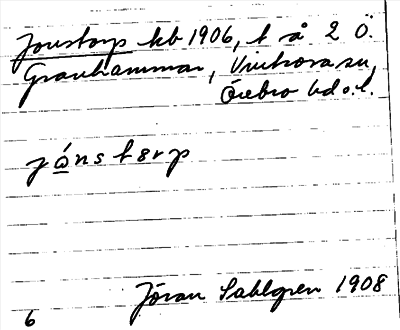 Jonstorp kb 1906, t å 2 Ö.
Granhammar, Vintrosa sn,
Örebro hd o. l.
jónstorp
Jöran Sahlgren 1908
6